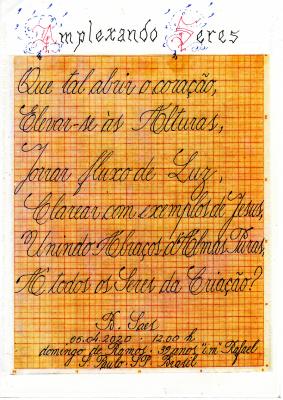 Amplexando Seres
Que tal abrir o coração,
Elevar-se às Alturas,
Jorrar fluxo de Luz,
Clarear com exemplos de Jesus,
Unindo Abraços d'Almas Puras,
A todos os Seres da Criação?
D. Saes
05.04.2020 - 12:00 h
domingo de Ramos - anos "i.m" Rafael
S. Paulo - SP - Brasil